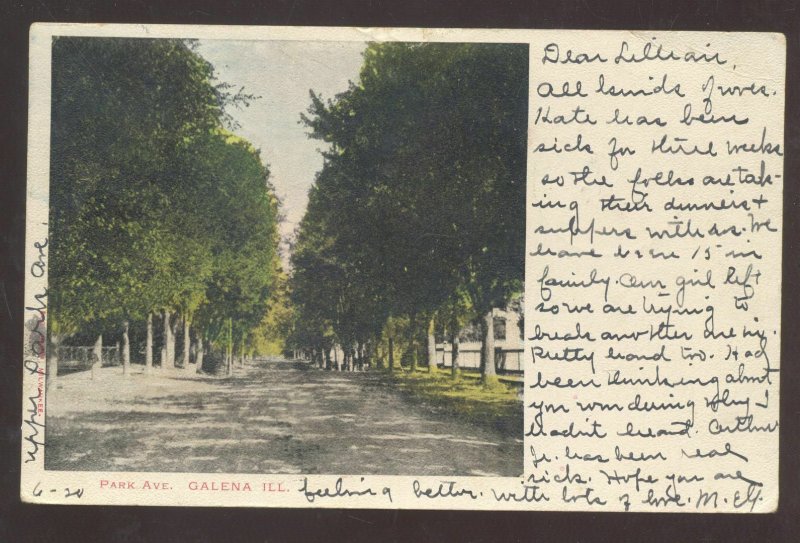 Dear Lillian,
All kinds of woes.
Kate has been
sick for three weeks
so the folks are tak-
ing their dinners +
suppers with us. We
have been 15 in
family. Our girl left
so we are trying to
break another one in.
Pretty hard too. Had
been thinking about
you wondering why I
hadn't heard. Arthur
Jr. has been real
sick. Hope you are
feeling better. with lots of love. M.
upper Park Ave.
6-20
PARK AVE. GALENA ILL.